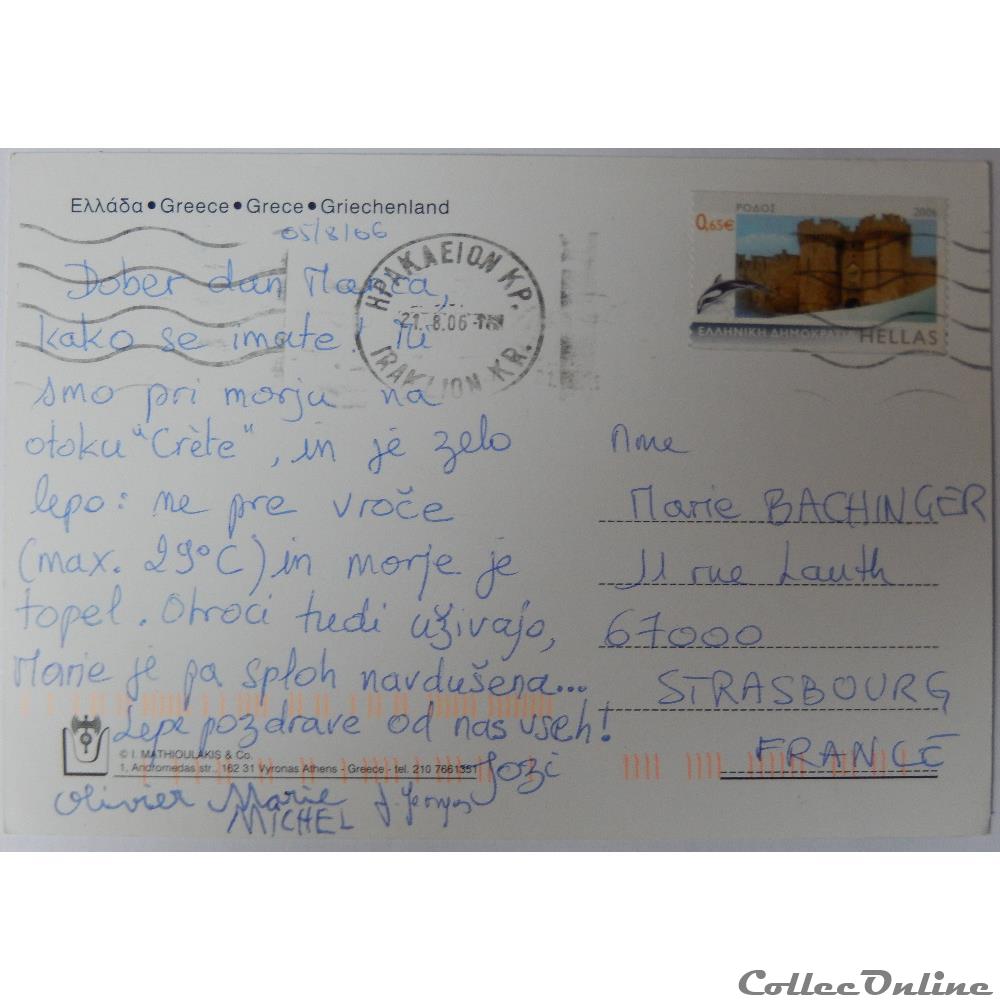 Ελλάδα • Greece • Grece • Griechenland
05/8/06
Dober dan Marica,
kako se imate! Tu
smo pri morju na
otoku "Crète", in je zelo
lepo: ne pre vroče
(max. 29°C) in morje je
topel. Otroci tudi uživajo,
Marie je pa sploh navdušena...
Lepe pozdrave od nas vseh!
Jozi
Olivier Marie J. Georges
MICHEL
© I. MATHIOULAKIS & Co.
1, Andromedas str., 162 31 Vyronas Athens - Greece - tel. 210 7661351
ΗΡΑΚΛΕΙΟΝ ΚΡ.
21.8.06
IRAKLION KR.
ΡΟΔΟΣ 2006
0,65€
ΕΛΛΗΝΙΚΗ ΔΗΜΟΚΡΑΤΙΑ HELLAS
Mme
Marie BACHINGER
11 rue Lauth
67000
STRASBOURG
FRANCE
CollecOnline